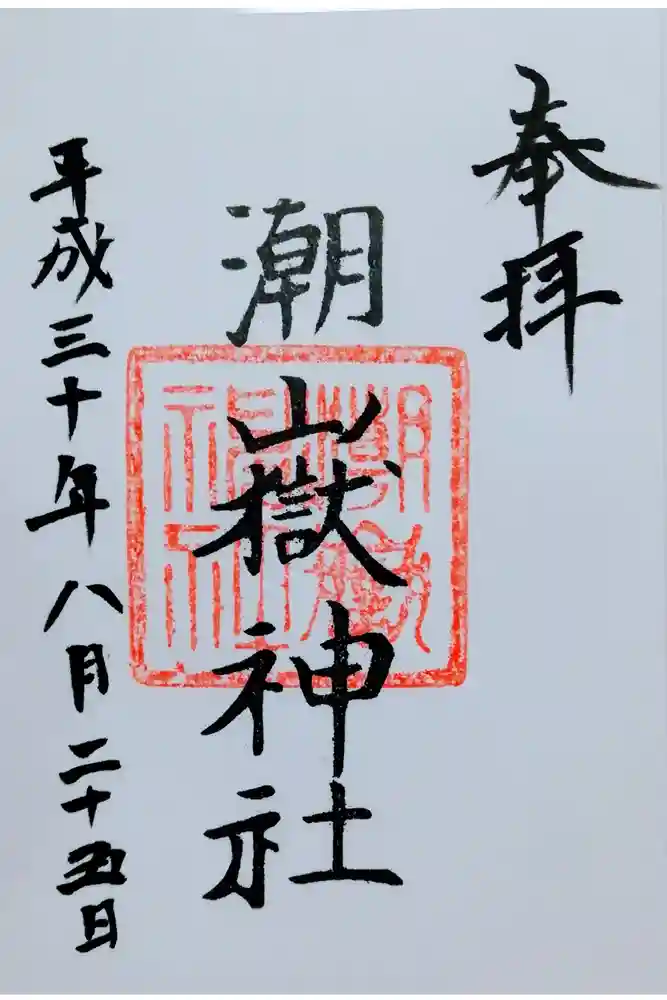 奉拝
潮嶽神社
平成三十年八月二十五日
潮嶽
神社